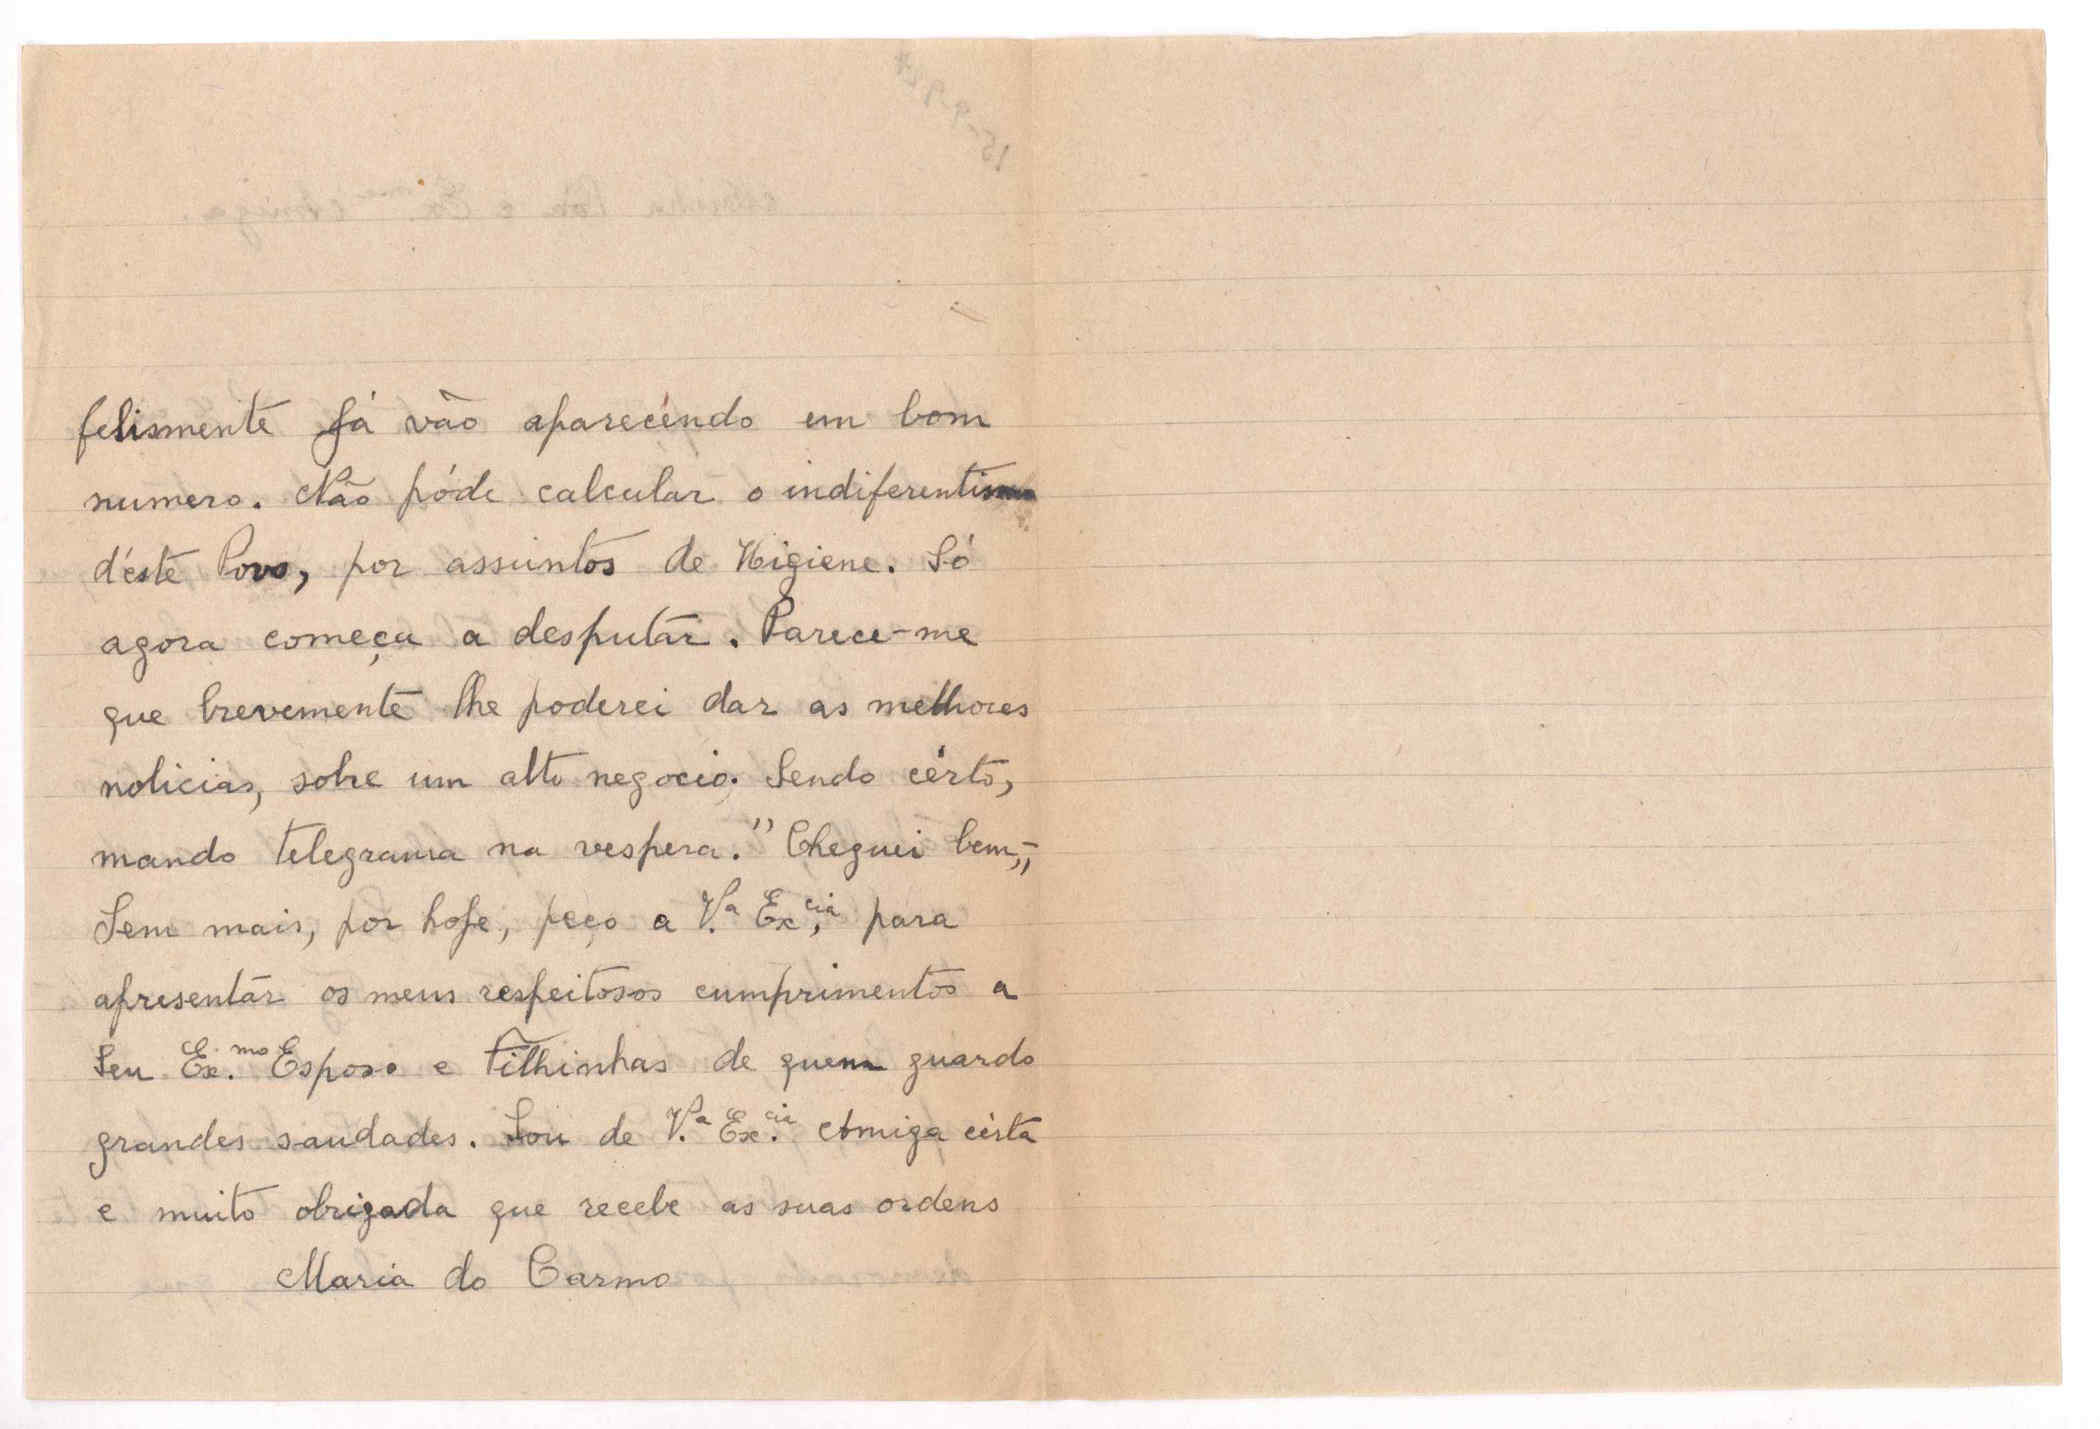 felismente já vão aparecéndo em bom
numero. Não póde calcular o indiferentismo
d'éste Povo, por assuntos de Higiene. Só
agora começa a desputár. Parece-me
que brevemente lhe poderei dar as melhores
noticias, sobre um alto negocio. Sendo cérto,
mando telegrama na vespera. "Cheguei bem,"
Sem mais, por hoje, peço a V.ª Ex.cia, para
apresentár os meus respeitosos cumprimentos a
Seu Ex.mo Esposo e Filhinhas de quem guardo
grandes saudades. Sou de V.ª Ex.cia Amiga cérta
e muito obrigada que recebe as suas ordens
Maria do Carmo